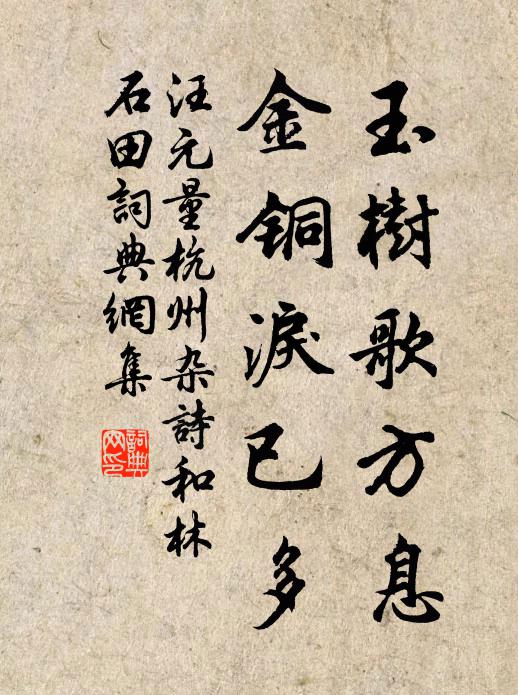 玉樹歌方息
金銅淚已多
汪元量杭州杂詩和林
石田詞典網集
詞典
网印